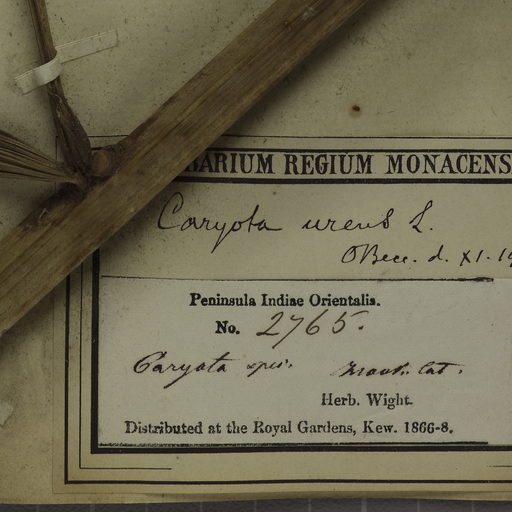 BARIUM REGIUM MONACENS
Caryota urens L.
OBecc. d. XI. 19
Peninsula Indiae Orientalis.
No. 2765.
Caryota
Cat.
Herb. Wight.
Distributed at the Royal Gardens, Kew. 1866-8.